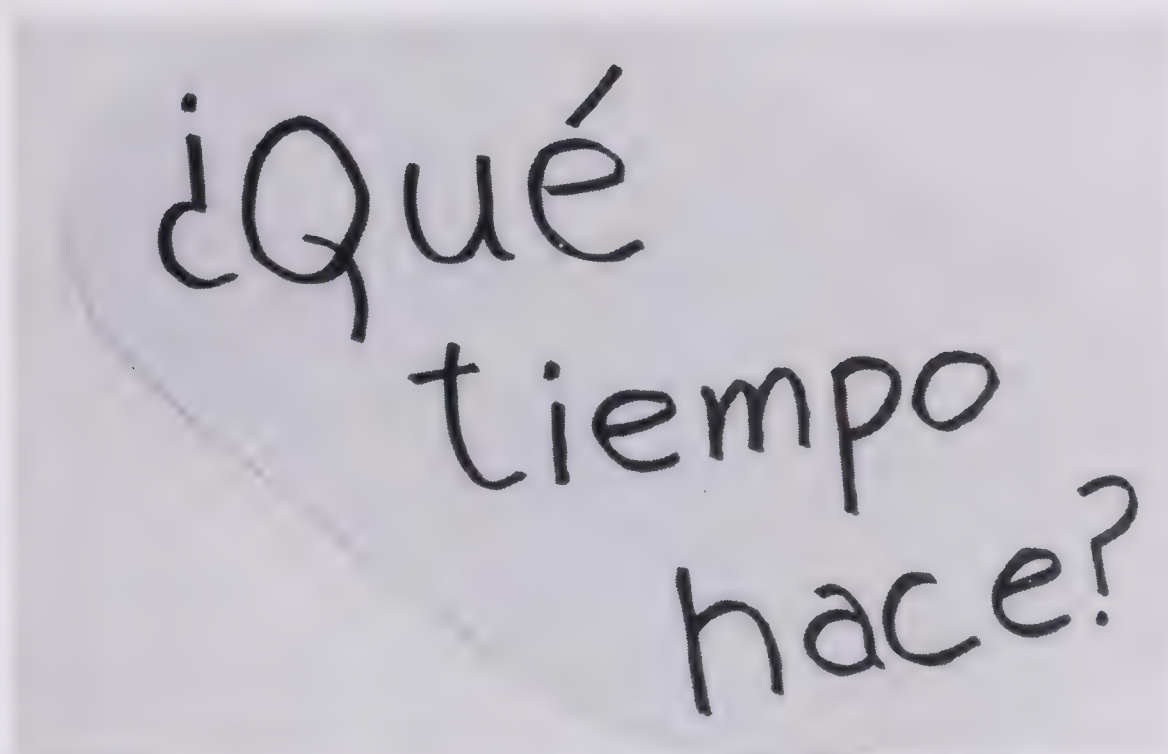 ¿Qué
tiempo
hace?